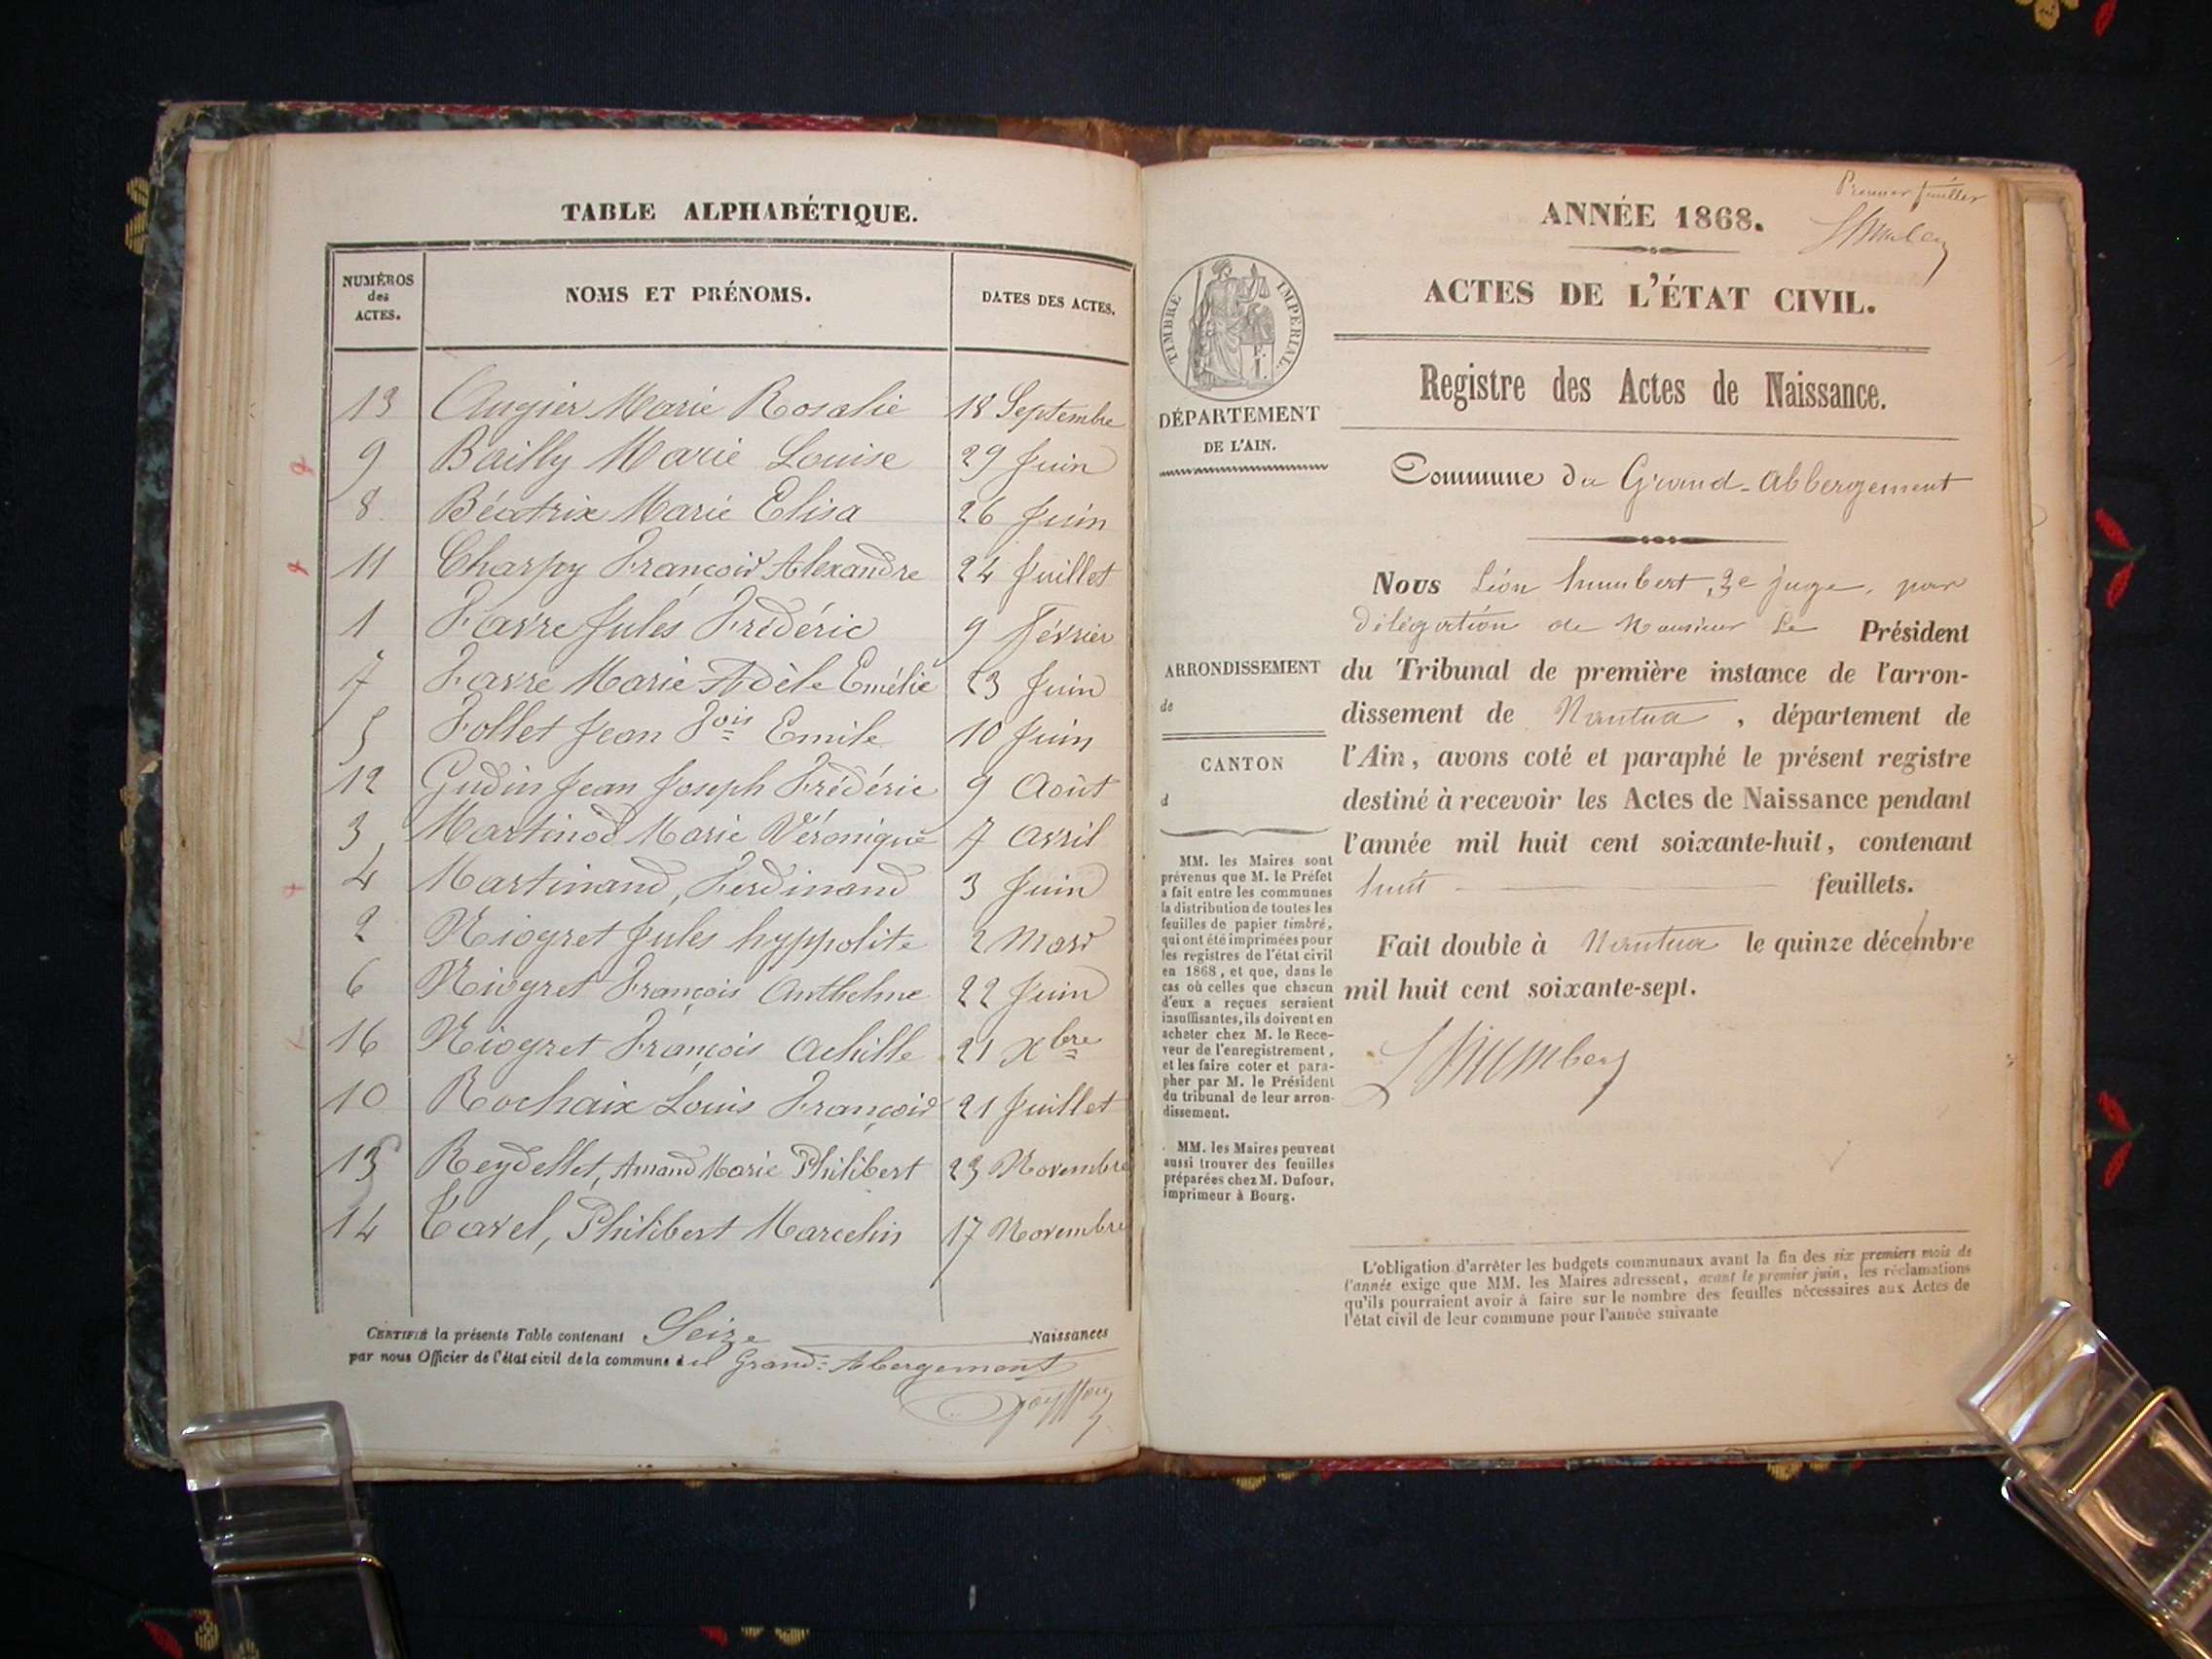 TABLE ALPHABÉTIQUE.
NUMÉROS des ACTES. NOMS ET PRÉNOMS. DATES DES ACTES.
13 Augier Marie Rosalie 18 Septembre
9 Bailly Marie Louise 29 Juin
8 Béatrix Marie Elisa 26 Juin
11 Charpy François Alexandre 24 Juillet
1 Favre Jules Frédéric 9 Février
7 Favre Marie Adèle Emélie 23 Juin
5 Follet Jean Fois Emile 10 Juin
12 Gudin Jean Joseph Frédéric 9 Août
3 Martinod Marie Véronique 7 Avril
4 Martinand, Ferdinand 3 Juin
2 Niogret Jules hyppolite 2 Mars
6 Niogret François Anthelme 22 Juin
16 Niogret François Achille 21 Xbre
10 Rochaix Louis François 21 Juillet
15 Reydellet, Amand Marie Philibert 23 Novembre
14 Tavel, Philibert Marcelin 17 Novembre
CERTIFIÉ la présente Table contenant Seize Naissances
par nous Officier de l'état civil de la commune du Grand-Abergement
Premier feuillet
ANNÉE 1868.
ACTES DE L'ÉTAT CIVIL.
Registre des Actes de Naissance.
Commune du Grand-Abbergement
TIMBRE IMPÉRIAL.
DÉPARTEMENT
DE L'AIN.
ARRONDISSEMENT
de
CANTON
d
MM. les Maires sont
prévenus que M. le Préfet
a fait entre les communes
la distribution de toutes les
feuilles de papier timbré,
qui ont été imprimées pour
les registres de l'état civil
en 1868, et que, dans le
cas où celles que chacun
d'eux a reçues seraient
insuffisantes, ils doivent en
acheter chez M. le Rece-
veur de l'enregistrement,
et les faire coter et para-
pher par M. le Président
du tribunal de leur arron-
dissement.
MM. les Maires peuvent
aussi trouver des feuilles
préparées chez M. Dufour,
imprimeur à Bourg.
Nous Léon humbert, 3e juge, par
délégation de Monsieur Le Président
du Tribunal de première instance de l'arron-
dissement de Nantua, département de
l'Ain, avons coté et paraphé le présent registre
destiné à recevoir les Actes de Naissance pendant
l'année mil huit cent soixante-huit, contenant
huit feuillets.
Fait double à Nantua le quinze décembre
mil huit cent soixante-sept.
L humbert
L'obligation d'arrêter les budgets communaux avant la fin des six premiers mois de
l'année exige que MM. les Maires adressent, avant le premier juin, les réclamations
qu'ils pourraient avoir à faire sur le nombre des feuilles nécessaires aux Actes de
l'état civil de leur commune pour l'année suivante